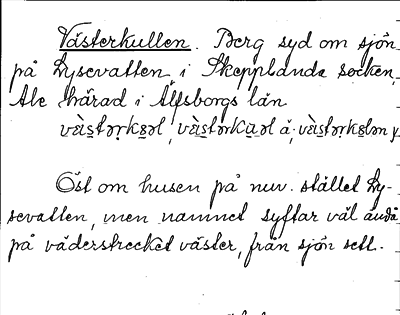 Västerkullen. Berg syd om sjön
på Lysevatten i Skepplanda socken,
Ale härad i Älfsborgs län
Öst om husen på nuv. stället Ly-
sevatten, men namnet syftar väl ändå
på väderstrecket väster, från sjön sett.